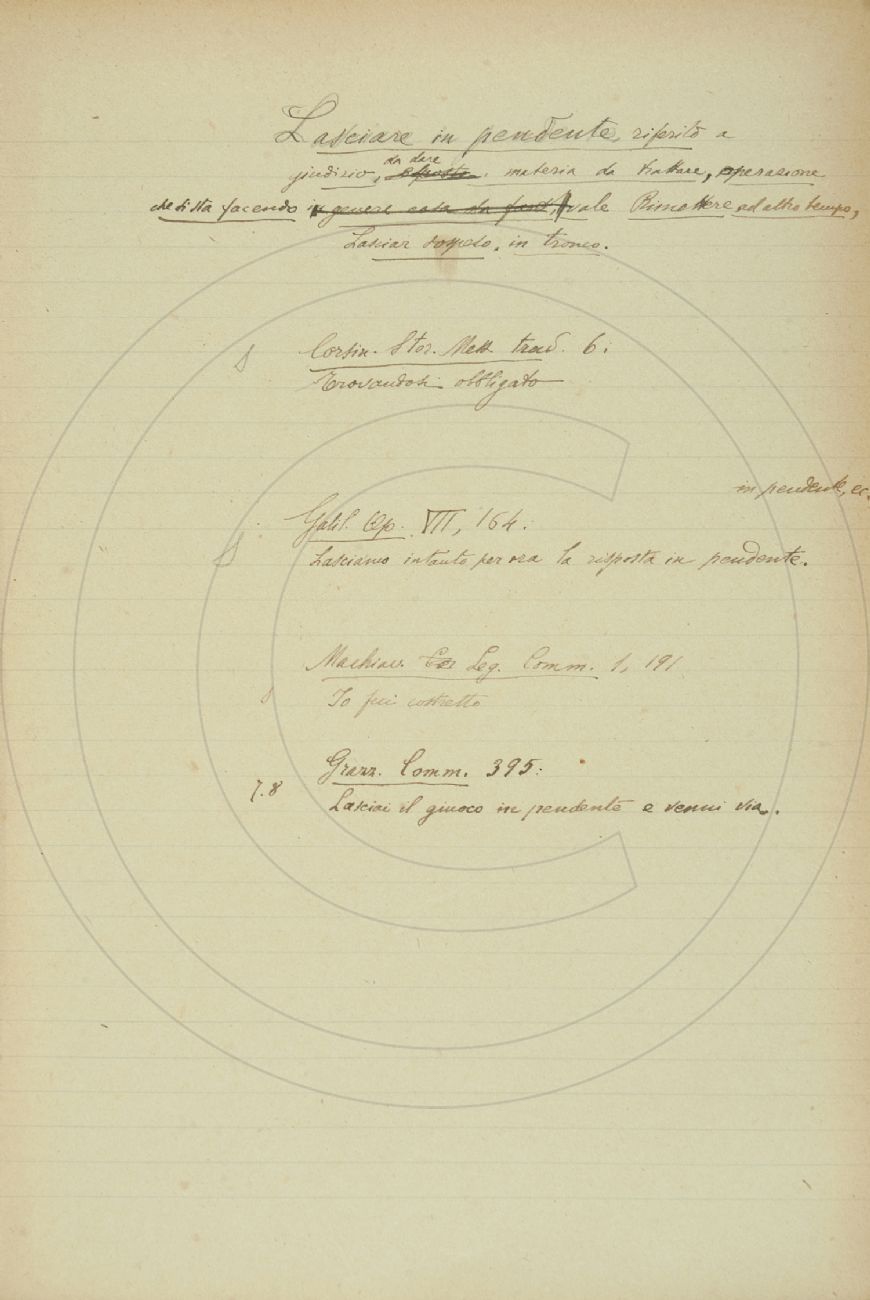 Lasciare in pendente, riferito a
da dare
giudizio, risposta, materia da trattare, operazione
che si sta facendo in genere cosa da farsi, vale Rimettere ad altro tempo,
Lasciar sospeso, in tronco.
Corsin. Stor. Mess. trad. 6:
Trovandosi obbligato
in pendente, ec.
Galil. Op. VII, 164:
Lasciamo intanto per ora la risposta in pendente.
Machiav. Leg. Comm. 1, 191
Io fui costretto
Grazz. Comm. 395:
7.8
Lasciai il giuoco in pendente e venni via.